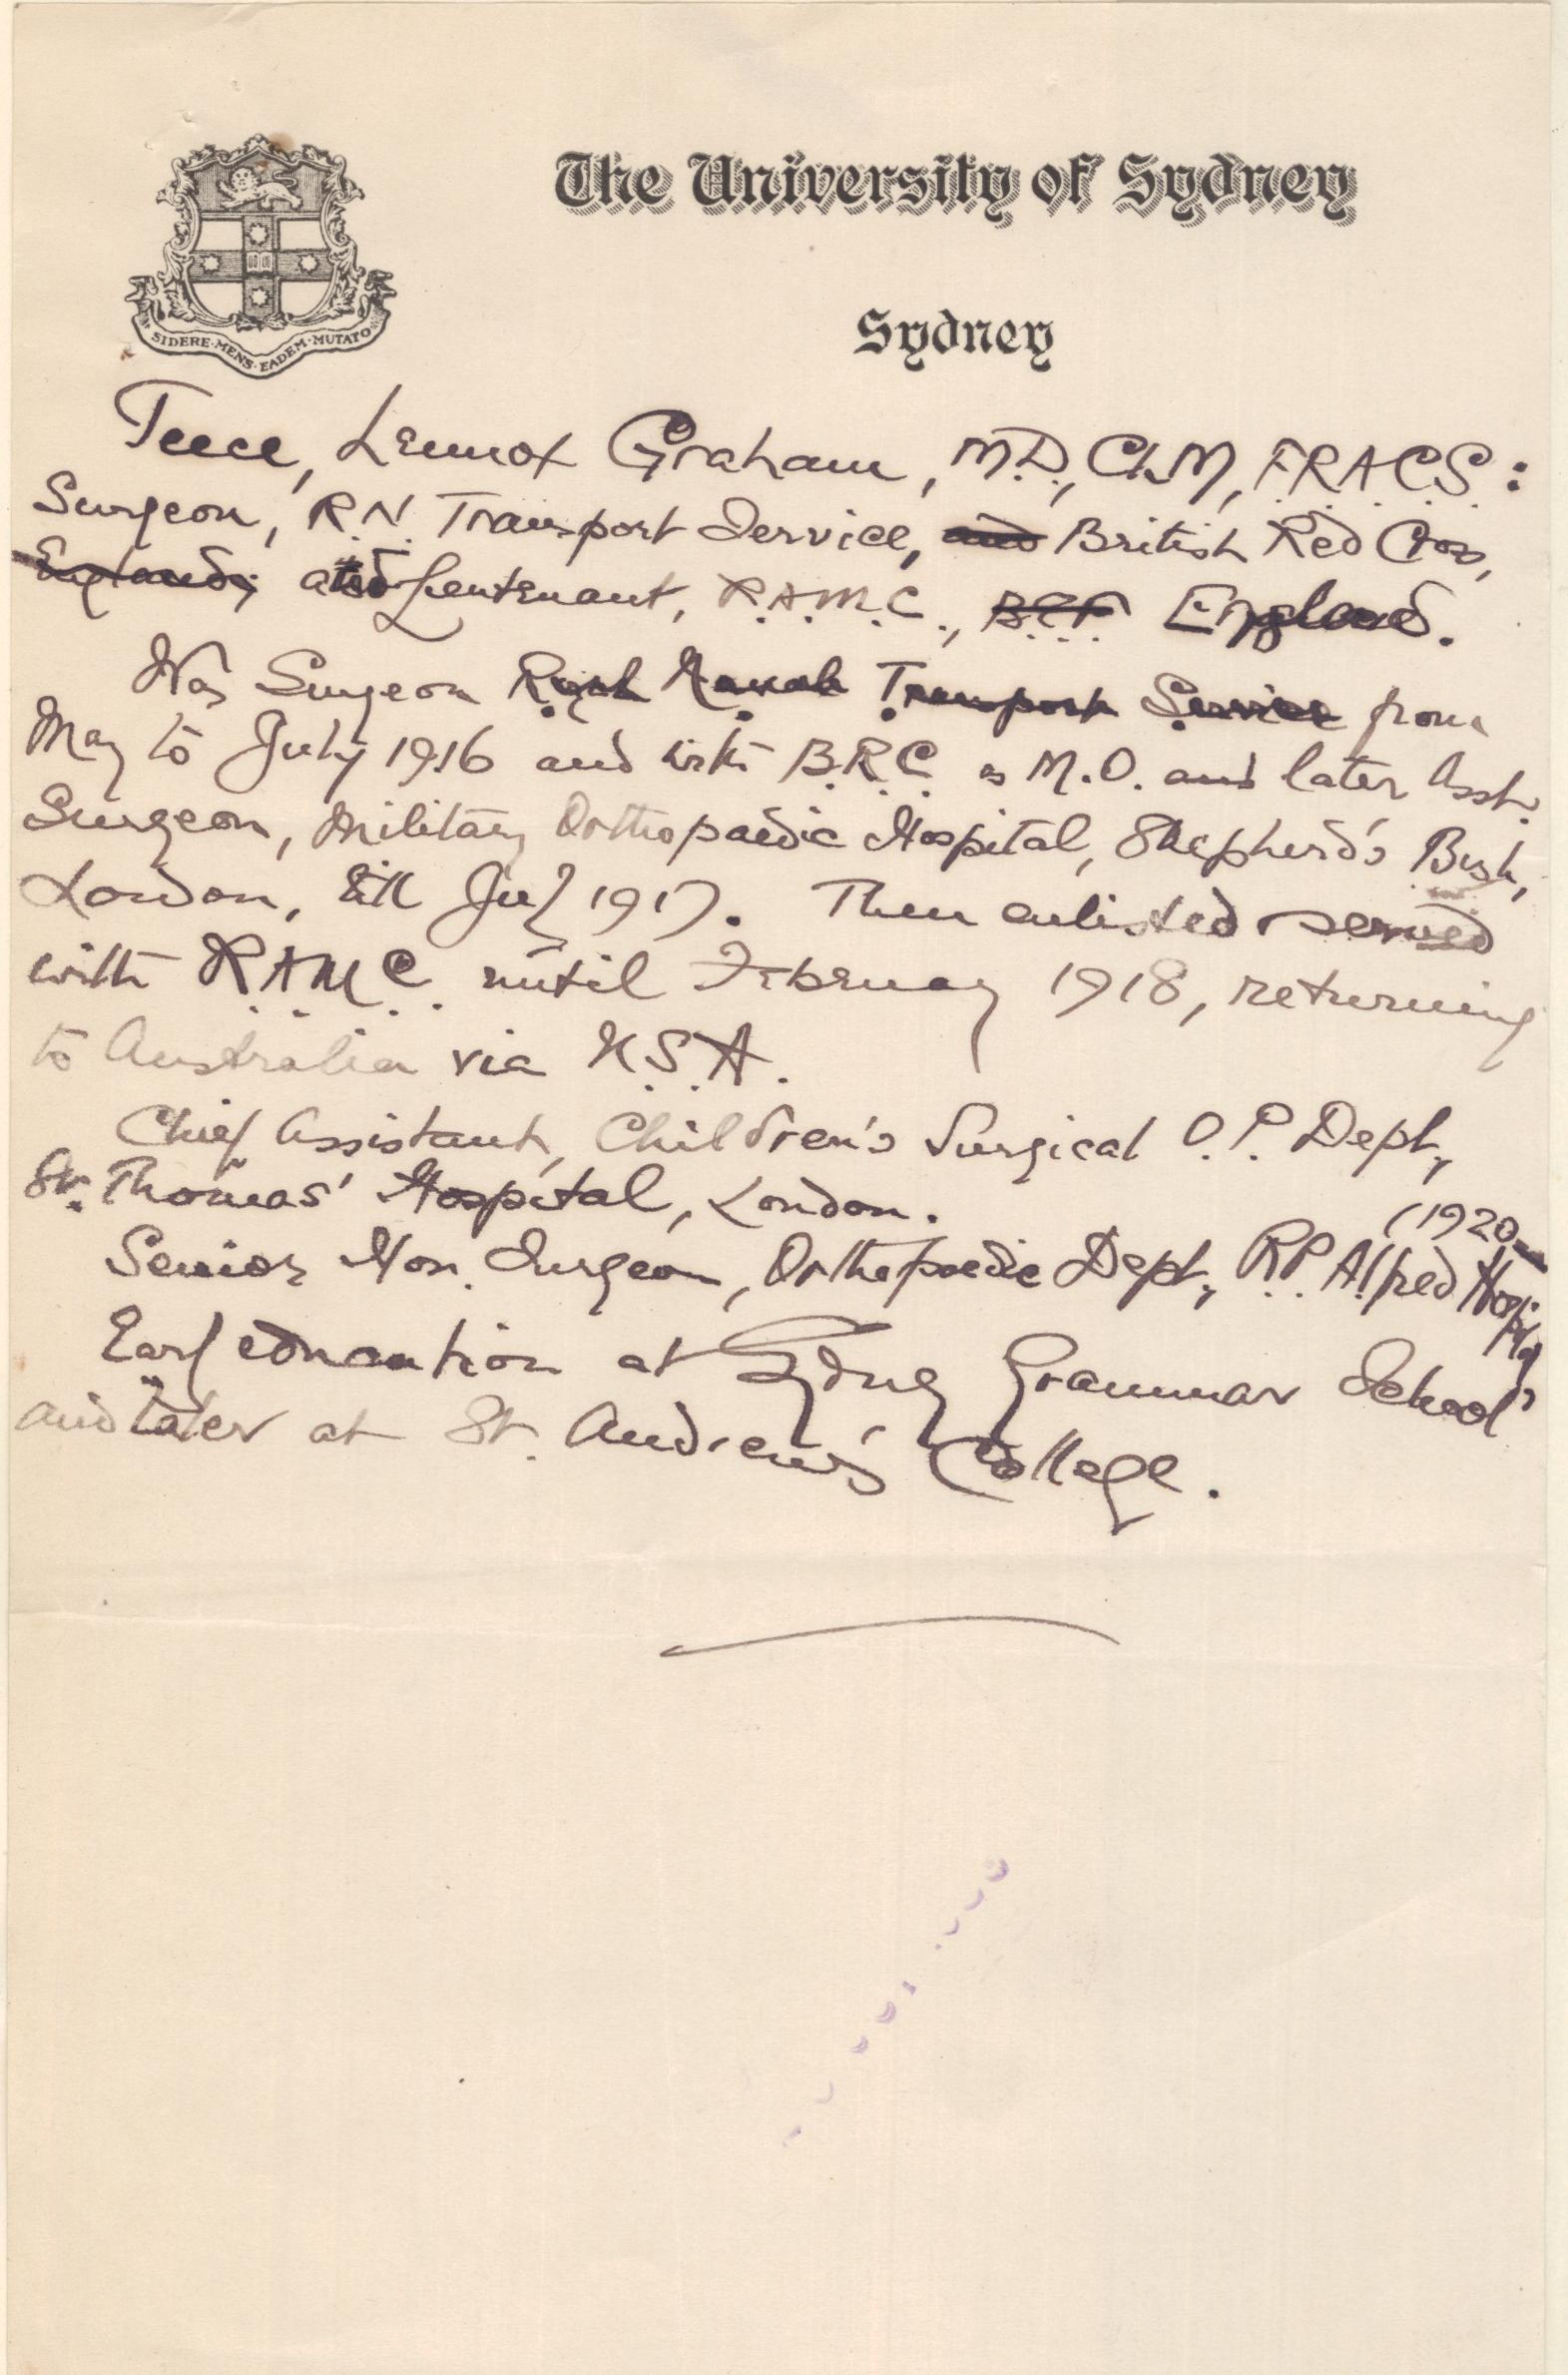 The University of Sydney
Sydney
SIDERE·MENS·EADEM·MUTATO
Teece, Lennox Graham, M.D., Ch.M, F.R.A.C.S:
Surgeon, R.N. Transport Service, and British Red Cross,
England; and Lieutenant, R.A.M.C., B.E.F. England.
Was Surgeon Royal Naval Transport Service from
May to July 1916 and with B.R.C. as M.O. and later Asst.
Surgeon, Military Orthopaedic Hospital, Shepherd's Bush,
London, till July 1917. Then enlisted served
with R.A.M.C. until February 1918, returning
to Australia via U.S.A.
Chief Assistant, Children's Surgical O.P. Dept,
St. Thomas' Hospital, London.
(1920
Senior Hon. Surgeon, Orthopaedic Dept, R.P. Alfred Hospital
Early education at Sydney Grammar School
and later at St. Andrew's College.